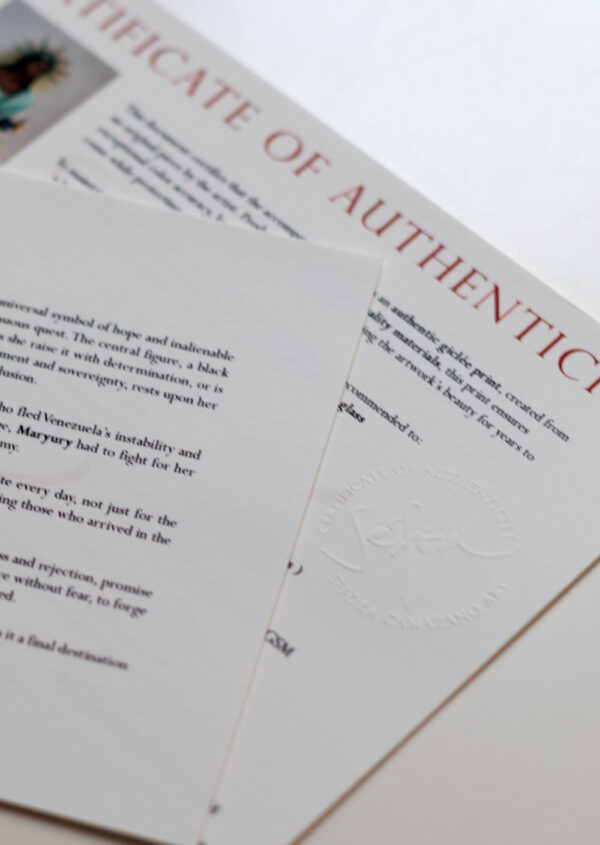 TIFICATE OF AUTHENTICI
This document certifies that the
an original piece by the artist.
exceptional color accuracy,
an authentic giclée print, created from
ality materials, this print ensures
ng the artwork's beauty for years to
commended to:
glass
GSM
CERTIFICATE OF AUTHENTICITY
Sefora
SEFORA CAMAZANO ART
universal symbol of hope and inalienable
uous quest. The central figure, a black
s she raise it with determination, or is
ment and sovereignty, rests upon her
lusion.
ho fled Venezuela's instability and
e, Maryury had to fight for her
my.
te every day, not just for the
ing those who arrived in the
ss and rejection, promise
ve without fear, to forge
ed.
it a final destination